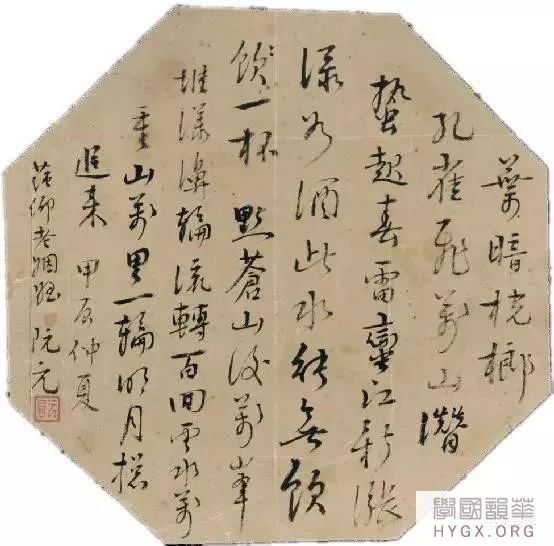 葉暗桄榔
孔雀飛萬山潛
蟄起春雷蠻江新漲
渌如酒此水能無
飲一杯 點蒼山後萬峯
堆漾濞輪流轉百回雲水萬
重山萬里一輪明月
追來 甲辰仲夏
老姻 阮元
華韻國學
HYGX.ORG